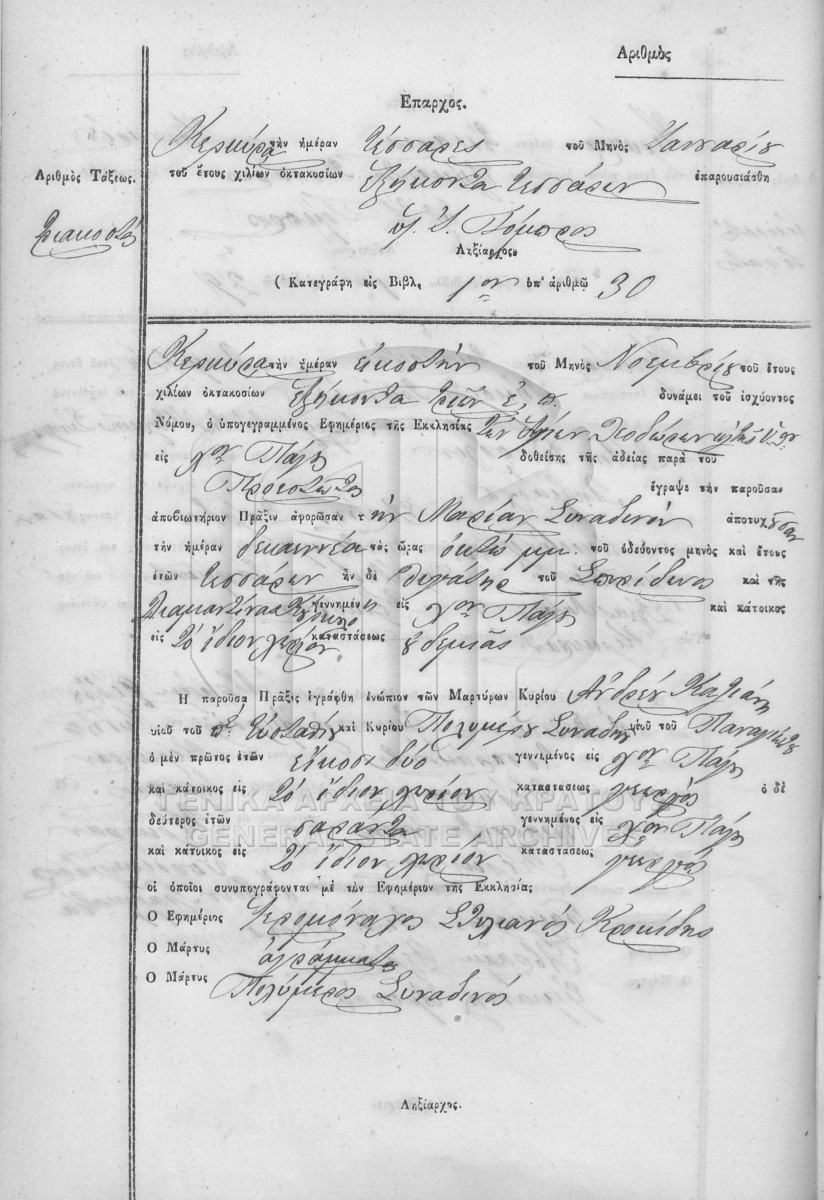 Αριθμὸς
Επαρχος.
Κερκύρα τὴν ἡμέραν τέσσαρες τοῦ Μηνὸς Ἰανναρίου
Αριθμὸς Τάξεως.
τοῦ ἔτους χιλίων ὀκτακοσίων ἑξήκοντα τεσσάρων ἐπαρουσιάσθη
Τριακοστή
Ληξίαρχος
( Κατεγράφη εἰς Βιβλ. 1ον ὑπ' ἀριθμῷ 30
Κερκύρα τὴν ἡμέραν εἰκοστὴν τοῦ Μηνὸς Νοεμβρίου τοῦ ἔτους
χιλίων ὀκτακοσίων ἑξήκοντα τριῶν ἑ. π. δυνάμει τοῦ ἰσχύοντος
Νόμου, ὁ ὑπογεγραμμένος Εφημέριος τῆς Εκκλησίας τῶν Ἁγίων Θεοδώρων
εἰς χον Πάγι δοθείσης τῆς ἀδείας παρὰ τοῦ
Προεστῶτος ἔγραψε τὴν παροῦσαν
ἀποβιωτήριον Πρᾶξιν ἀφορῶσαν τὴν Μαρίαν Συναδινὸν ἀποτυχοῦσαν
τὴν ἡμέραν δεκαεννέα τὰς ὥρας ὀκτὼ μμ. τοῦ ὁδεύοντος μηνὸς καὶ ἔτους
ἐτῶν τεσσάρων ἦν δὲ θυγάτηρ τοῦ Σπυρίδωνος καὶ τῆς
Διαμαντίνας γεννημένης εἰς χον Πάγι καὶ κάτοικος
εἰς τὸ ἴδιον χωρίον καταστάσεως οὐδεμιᾶς
Η παροῦσα Πρᾶξις ἐγράφθη ἐνώπιον τῶν Μαρτύρων Κυρίου Ἀνδρέου
υἱοῦ τοῦ πε Εὐσταθίου καὶ Κυρίου Πολυμέρου Συναδηνοῦ υἱοῦ τοῦ Παναγιώτου
ὁ μὲν πρῶτος ἐτῶν εἴκοσι δύο γεννημένος εἰς χον Πάγι
καὶ κάτοικος εἰς τὸ ἴδιον χωρίον καταστάσεως γεωργὸς ὁ δὲ
δεύτερος ἐτῶν σαράντα γεννημένος εἰς χον Πάγι
καὶ κάτοικος εἰς τὸ ἴδιον χωρίον καταστάσεως γεωργὸς
οἱ ὁποῖοι συνυπογράφονται μὲ τὸν Εφημέριον τῆς Εκκλησίας
Ο Εφημέριος Ἱερομόναχος Στυλιανὸς Κροκίδης
Ο Μάρτυς ἀγράμματος
Ο Μάρτυς Πολύμερος Συναδινὸς
Ληξίαρχος.
ΓΕΝΙΚΑ ΑΡΧΕΙΑ ΤΟΥ ΚΡΑΤΟΥΣ
GENERAL STATE ARCHIVES